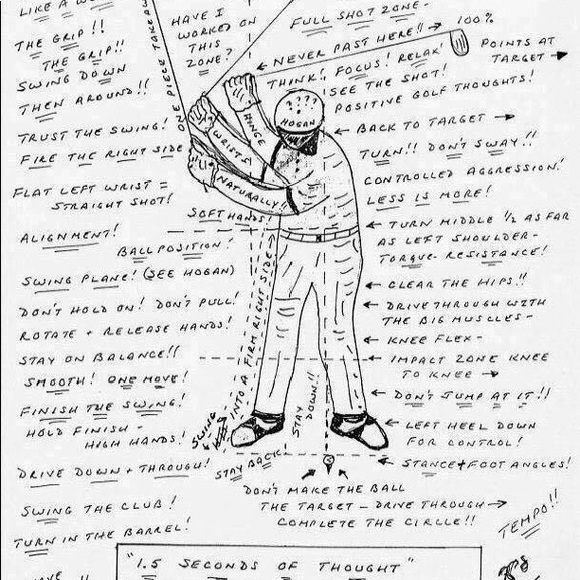 LIKE A
THE GRIP!!
THE GRIP!!
SWING DOWN
THEN AROUND!!
TRUST THE SWING!
FIRE THE RIGHT SIDE
FLAT LEFT WRIST =
STRAIGHT SHOT!
ALIGNMENT!
BALL POSITION!
SWING PLANE! (SEE HOGAN)
DON'T HOLD ON! DON'T PULL!
ROTATE + RELEASE HANDS!
STAY ON BALANCE!!
SMOOTH! ONE MOVE!
FINISH THE SWING!
HOLD FINISH -
HIGH HANDS!
DRIVE DOWN + THROUGH!
SWING THE CLUB!
TURN IN THE BARREL!
ONE PIECE TAKE
HAVE I
WORKED ON
THIS
ZONE?
FULL SHOT ZONE-
NEVER PAST HERE!! 100%
THINK! FOCUS! RELAX!
SEE THE SHOT!
POSITIVE GOLF THOUGHTS!
POINTS AT
TARGET
????
HOGAN
HINGE
WRISTS
NATURALLY!
SOFT HANDS!
BACK TO TARGET
TURN!! DON'T SWAY!!
CONTROLLED AGGRESSION!
LESS IS MORE!
TURN MIDDLE 1/2 AS FAR
AS LEFT SHOULDER-
TORQUE- RESISTANCE!
CLEAR THE HIPS!!
DRIVE THROUGH WITH
THE BIG MUSCLES-
KNEE FLEX-
IMPACT ZONE KNEE
TO KNEE
DON'T JUMP AT IT!!
LEFT HEEL DOWN
FOR CONTROL!
STANCE + FOOT ANGLES!
INTO A FIRM RIGHT SIDE
SWING
STAY BACK
STAY
DOWN!!
DON'T MAKE THE BALL
THE TARGET - DRIVE THROUGH
COMPLETE THE CIRCLE!!
TEMPO!!
"1.5 SECONDS OF THOUGHT"